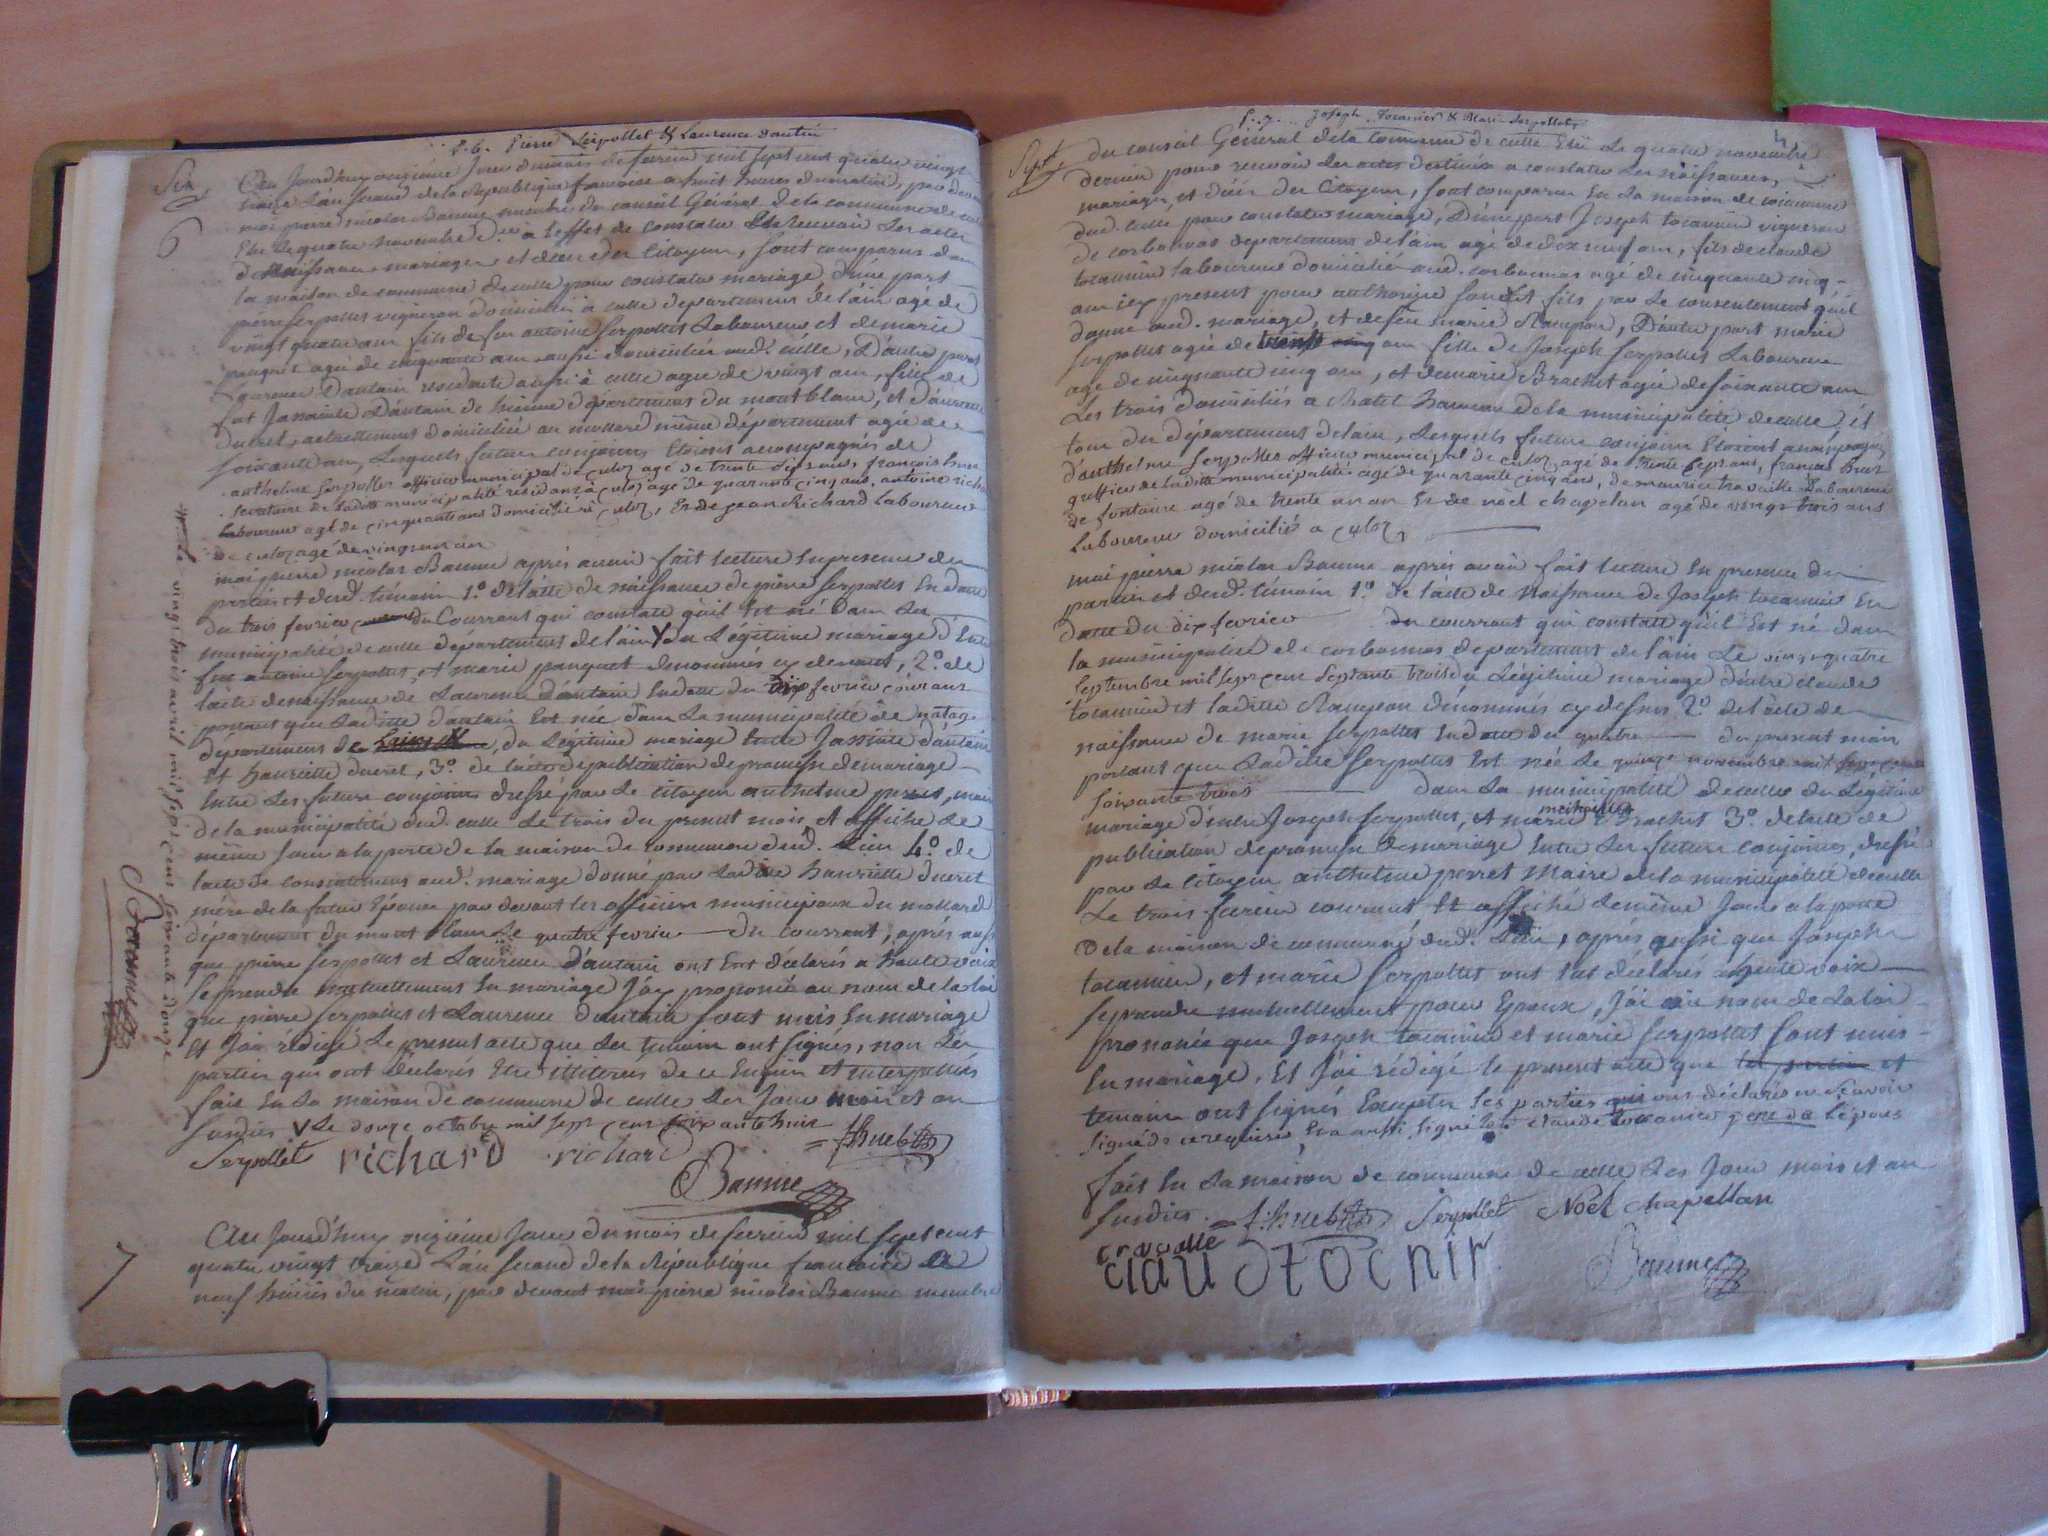 P. 6. Pierre Serpollet & Laurence Dantin
Six
6
Au Jourd'huy onzieme Jour du mois de fevrier mil sept cent quatre vingt
treize L'an second de la République francoise a huit heures du matin, par devant
moi pierre nicolas Baume membre du conseil Général de la commune de culle
Elu le quatre novembre d.er a l'effet de constater les
Naissances, mariages et decès des Citoyens, sont comparus dans
la maison de commune de culle pour constater mariage d'une part
pierre serpollet vigneron domicilié à culle departement de l'ain agé de
vingt quatre ans fils de feu antoine serpollet Laboureur et de marie
panguet agée de cinquante ans aussi domiciliée aud. culle, D'autre part
Laurence Dantain residante aussi à culle agée de vingt ans, fille de
feu Jassinte Dantain de departement du mont blanc, et d'
Ducret actuellement domiciliée au mollard même département agée de
soixante ans, Lesquels futurs conjoints Etoient accompagnés de
anthelme serpollet officier municipal de culoz agé de trente sept ans, francois hue
secretaire de ladite municipalité residant à culoz agé de quarante cinq ans, antoine richard
laboureur agé de cinquante ans domicilié à culoz, Et de jean Richard Laboureur
de culoz agé de vingt un an
moi pierre nicolas Baume après avoir fait lecture En presence des
parties et desd. temoins 1.o de l'acte de naissance de pierre serpollet En date
du trois fevrier du Courrant qui constate qu'il Est né dans la
municipalité de culle département de l'ain V du Légitime mariage d'Entre
feu antoine serpollet, et marie panguet denommés cy devant, 2.o de
l'acte de naissance de Laurence Dantain En date du dix fevrier courant
portant que Ladite Dantain Est née dans La municipalité de natage
departement de , du Légitime mariage Entre Jassinte Dantain
et hanriette ducret, 3.o de l'acte de publication de promesse de mariage
Entre Les futurs conjoints dressé par Le citoyen anthelme perret, maire
de la municipalité dud. culle Le trois du present mois et affiché Le
même jour a la porte de la maison de commune dud. Lieu 4.o de
l'acte de consentement aud. mariage donné par Ladite hanriette ducret
mère de la future Epouse par devant les officiers municipaux du mollard
département du mont blanc Le quatre fevrier du courrant, après aussi
que pierre serpollet et Laurence Dantain ont Ent déclarés a haute voix
se prendre mutuellement En mariage J'ay prononcé au nom de la loi
que pierre serpollet et Laurence Dantain sont unis En mariage
Et J'ai rédigé Le present acte que Les temoins ont signés, non Les
parties qui ont déclarés Etre illiteres de ce Enquis et interpellés
fait En La maison de commune de culle Les Jour mois et an
susdits V Le douze octobre mil sept cent soixante huit
Serpollet richard richard f: hue
Baume
Le vingt trois avril mil sept cent soixante douze
Baume
7
Au Jourd'huy onzieme Jour du mois de fevrier mil sept cent
quatre vingt treize L'an second de la République francoise a
neuf heures du matin, par devant moi pierre nicolas Baume membre
P. 7. Joseph Tocanier & Marie Serpollet
4
Sept
du conseil Général de la commune de culle Elu Le quatre novembre
dernier pour recevoir les actes destinés a constater Les naissances,
mariages, et décès des Citoyens, sont comparus En La maison de commune
dud. culle pour constater mariage, D'une part Joseph tocanier vigneron
de corbonnas departement de l'ain agé de dix neuf ans, fils de claude
tocanier laboureur domicilié aud. corbonnas agé de cinquante cinq
ans icy present pour authoriser sondit fils par Le consentement qu'il
donne aud. mariage, et de feu marie Raupon, D'autre part marie
serpollet agée de trente ans fille de Joseph serpollet Laboureur
agé de cinquante cinq ans, et de marie Brachet agée de soixante ans
Les trois domiciliés a Chatel de la municipalité de culle, et
tous du département de l'ain, Lesquels futurs conjoints Etoient accompagnés
d'anthelme serpollet officier municipal de culoz agé de trente sept ans, francois hue
greffier de ladite municipalité agé de quarante cinq ans, de maurice travaille Laboureur
de fontaine agé de trente un an Et de noël chapelan agé de vingt trois ans
Laboureur domicilié a culoz
moi pierre nicolas Baume après avoir fait lecture En presence des
parties et desd. témoins 1.o de l'acte de Naissance de Joseph tocanier En
date du dix fevrier du courrant qui constate qu'il Est né dans
la municipalité de corbonnas departement de l'ain Le vingt quatre
septembre mil sept cent septante trois du Légitime mariage d'entre claude
tocanier et ladite Raupon dénommés cy dessus 2.o de l'acte de
naissance de marie serpollet En date du quatre du present mois
portant que Ladite serpollet Est née Le quinze novembre mil sept cent
soixante trois dans La municipalité de culle du Légitime
mariage d'entre Joseph serpollet, et marie Brachet 3.o de l'acte de
publication de promesse de mariage Entre Les futurs conjoints, dressé
par Le citoyen anthelme perret Maire de la municipalité de culle
Le trois fevrier courrant Et affiché Le même Jour a la porte
de la maison de commune dud. Lieu, après aussi que Joseph
tocanier, et marie serpollet ont Ent déclarés a haute voix
se prendre mutuellement pour Epoux, J'ai au nom de La loi
prononcé que Joseph tocanier et marie serpollet sont unis
En mariage, Et J'ai rédigé le present acte que les parties et
temoins ont signés Excepter les parties qui ont déclarés ne sçavoir
signé de ce requis, Et a aussi signé led. claude tocanier pere de l'époux
fait En La maison de commune de culle Les Jour mois et an
susdits. f: hue Serpollet Noël chapellan
travaille
claud tocnir Baume